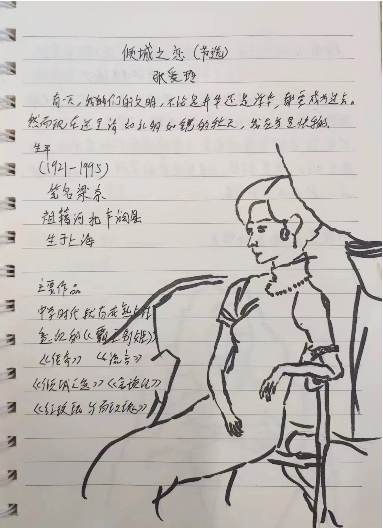 倾城之恋(节选)
张爱玲
有一天,我们的文明,不论是升华还是浮华,都要成为过去。
然而现在还是清如水明如镜的秋天,我应当是快乐的。
生平
(1921-1995)
笔名梁京
祖籍河北丰润县
生于上海
主要作品
中学时代就有
《霸王别姬》
《传奇》 《流言》
《倾城之恋》《金锁记》
《红玫瑰与白玫瑰》